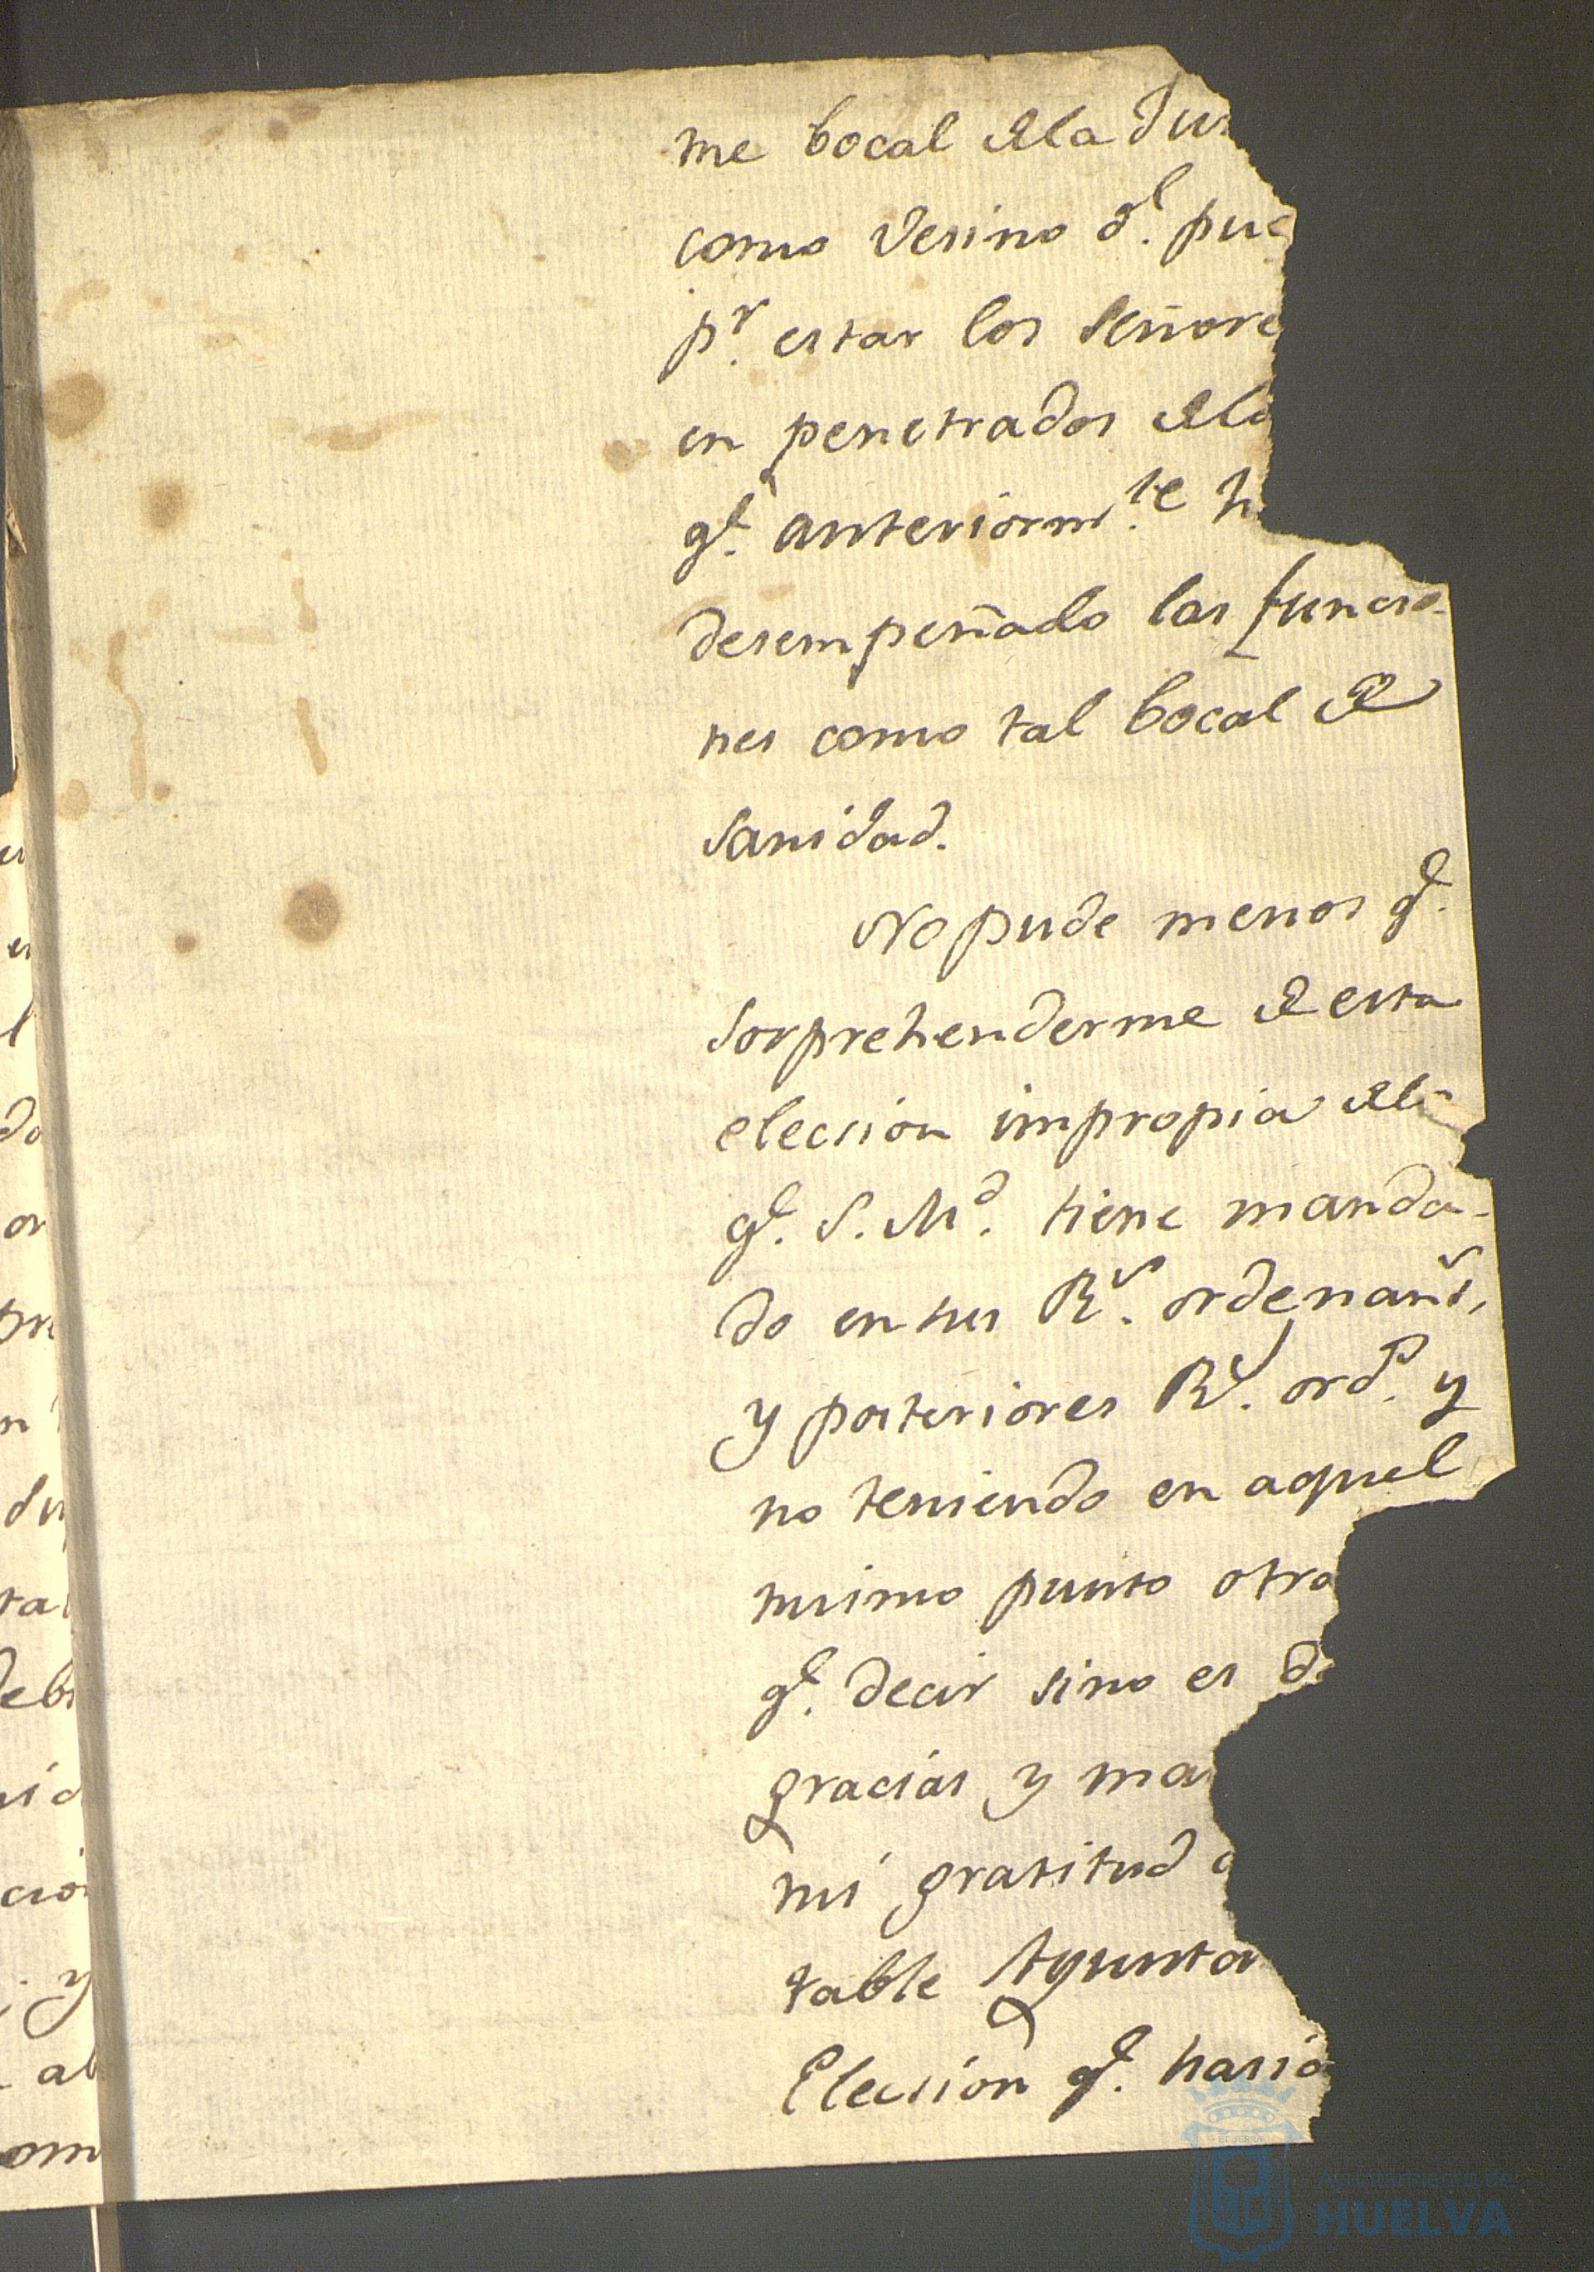 me bocal de la Jun
como Vesino q.l pue
p.r estar los Señore
en penetrados de la
q.e anteriorm.te h
desempeñado las funcio-
nes como tal bocal de
Sanidad.
No pude menos q.e
sorprehenderme de esta
elecsion impropia de lo
q.e S. M.d tiene manda-
do en sus R.s ordenans,
y posteriores R.s ord.s y
no teniendo en aquel
mismo punto otra
q.e decir sino es d
gracias y ma
mi gratitud a
table Ayunta
Elecsion q.e hasia
es
en
l
do
or
pre
n
du
ta
deb
cio
y
ab
om
Ayuntamiento de
HUELVA